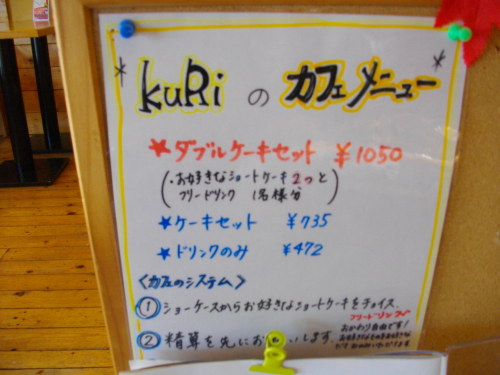 *kuRiのカフェメニュー*
★ダブルケーキセット ¥1050
(・お好きなショートケーキ2つと
フリードリンク 1名様分)
★ケーキセット ¥735
★ドリンクのみ ¥472
〈カフェのシステム〉
① ショーケースからお好きなショートケーキをチョイス。
フリードリンク
おかわり自由です!
② 精算を先にお願いします。